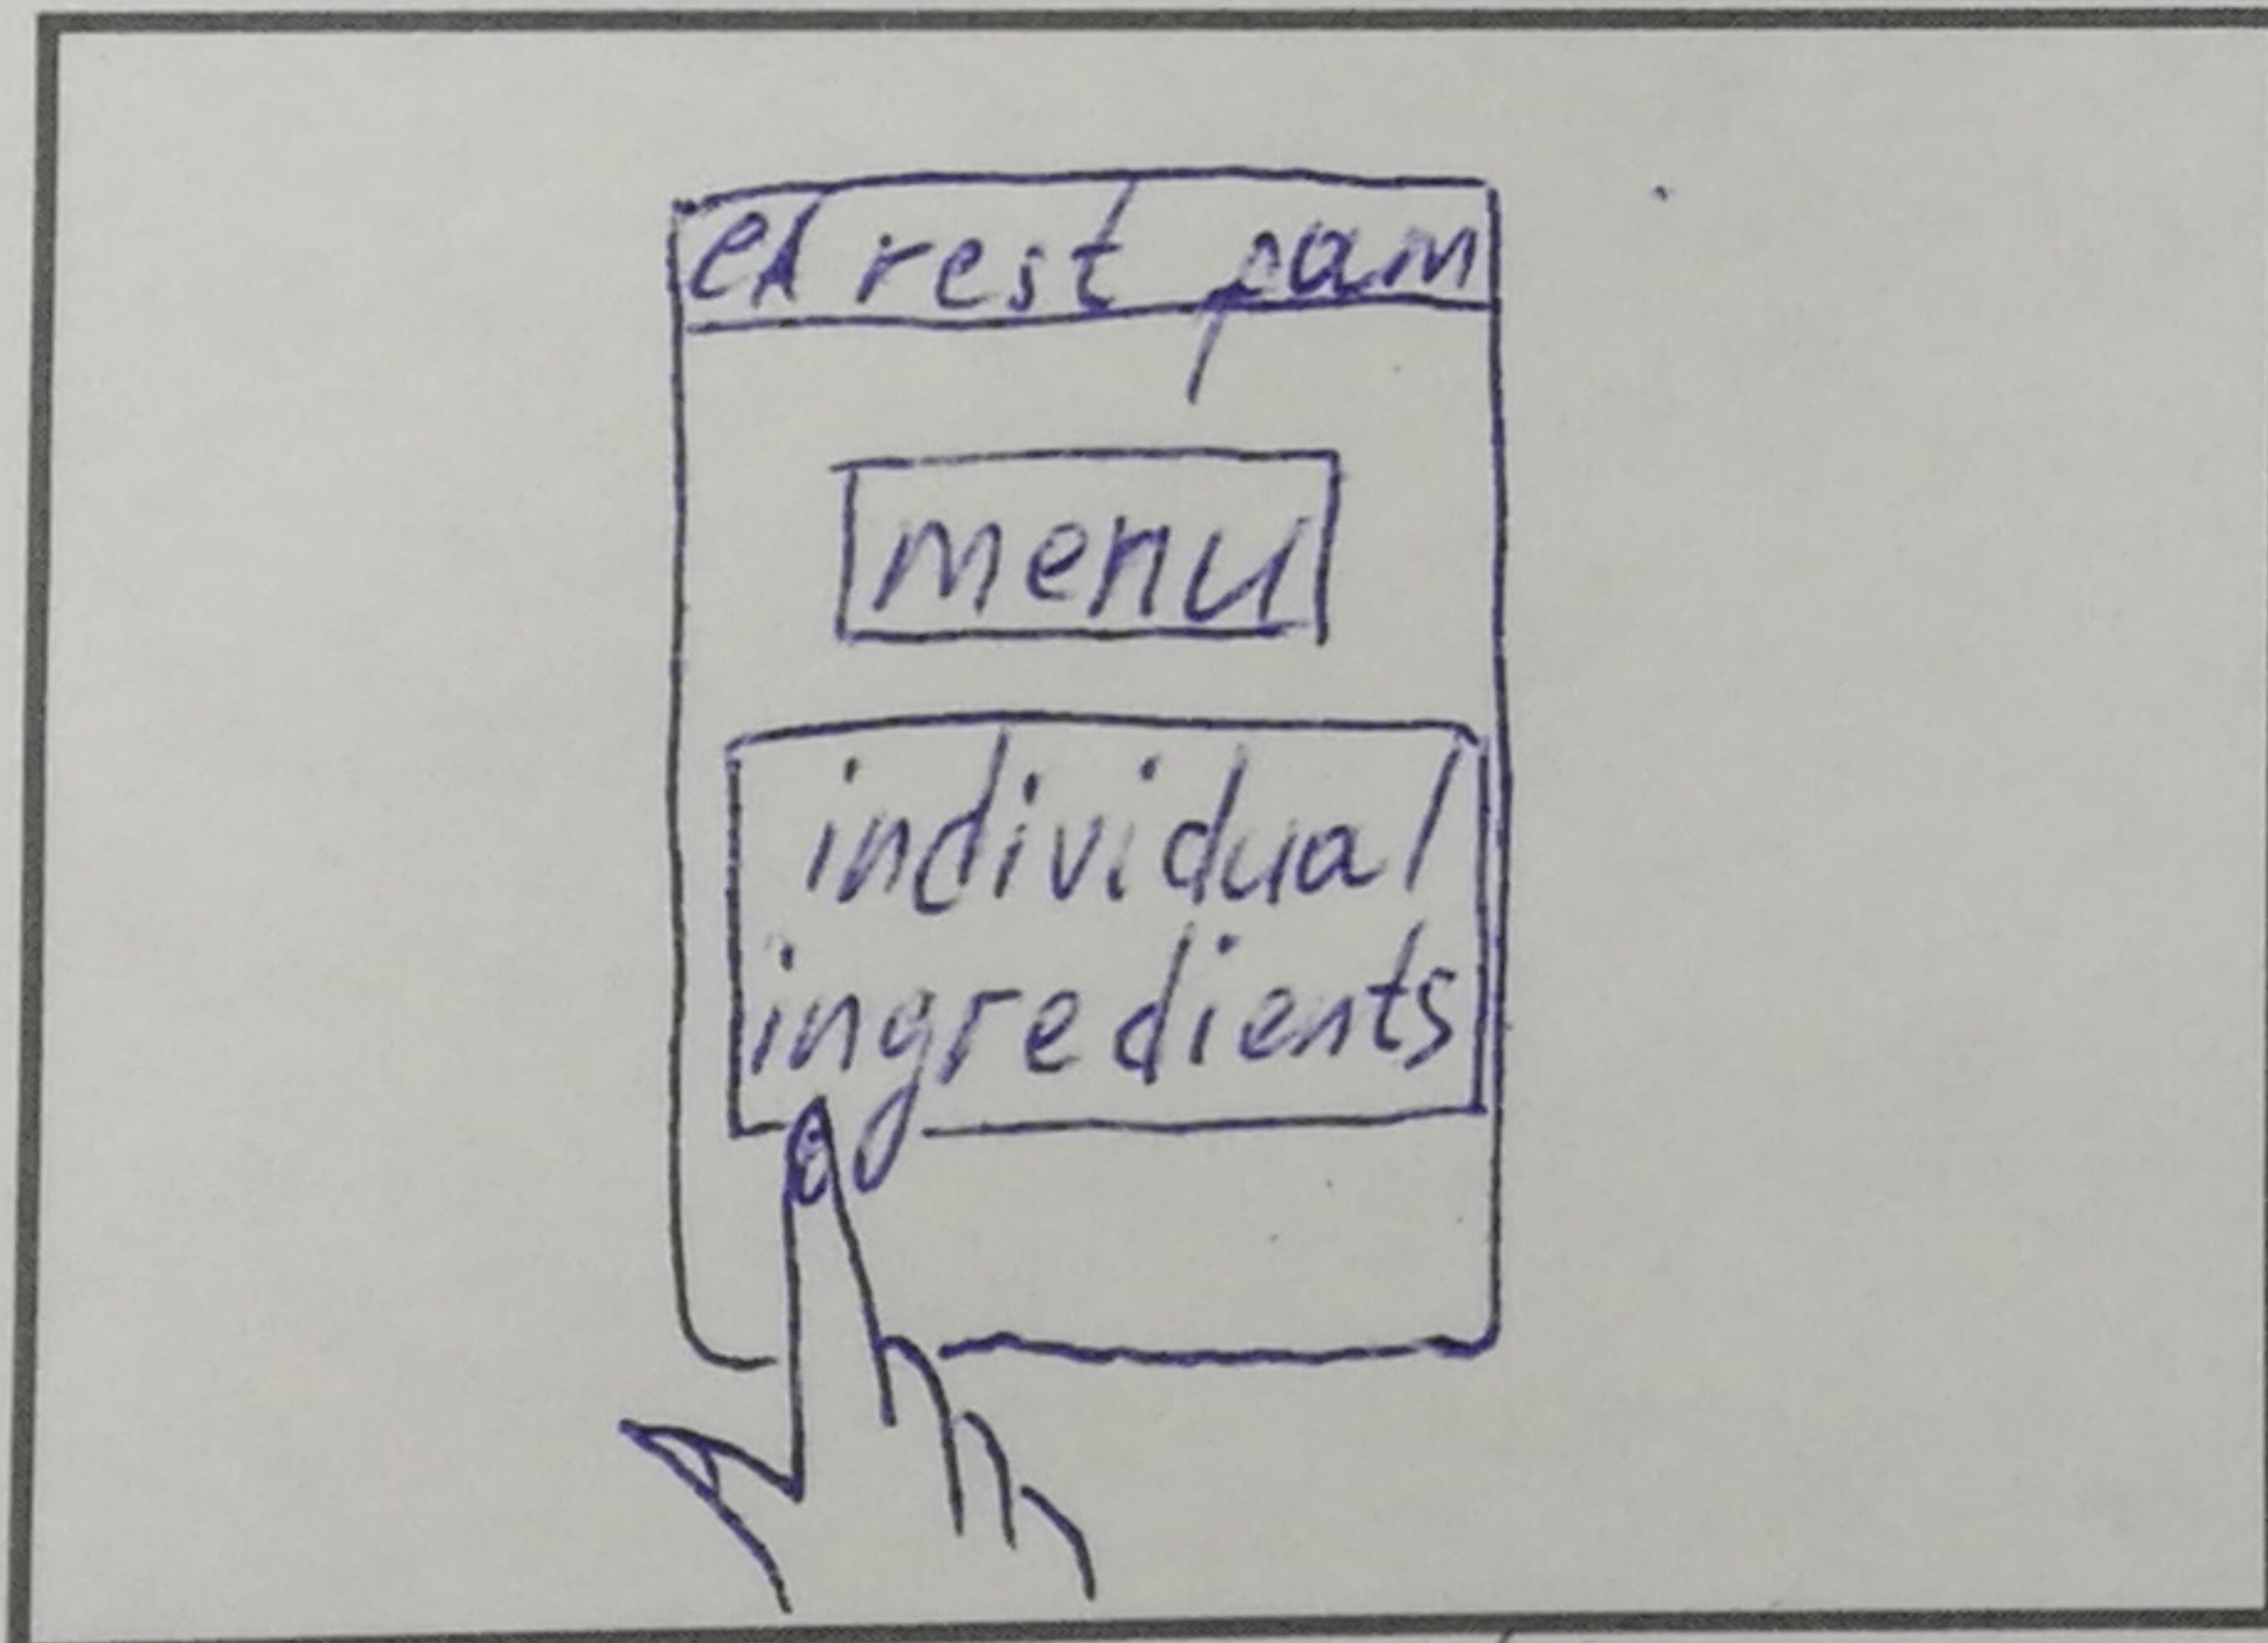 el rest pam
menu
individual
ingredients